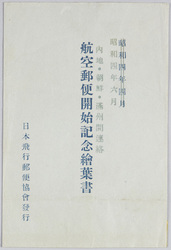 昭和四年四月
昭和四年六月
内地・朝鮮・満州間連絡
航空郵便開始記念繪葉書
日本飛行郵便協會發行